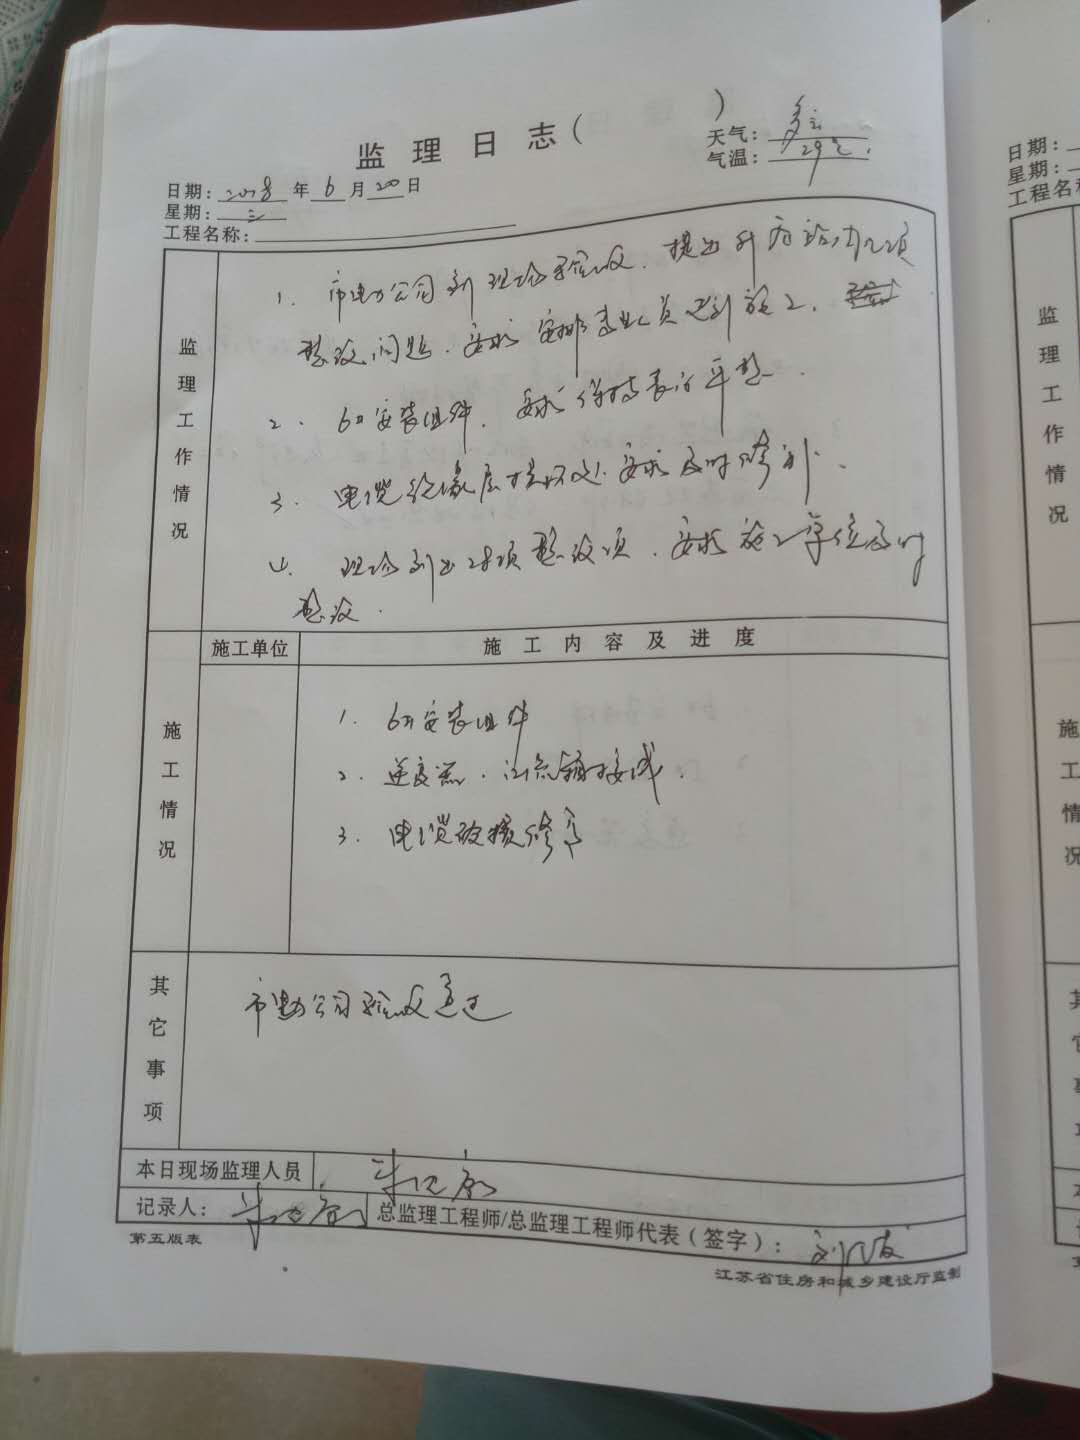 监理日志( )
天气: 多云
气温: 29℃.
日期: 2018 年 6 月 20 日
星期: 三
工程名称:
监理工作情况
1. 市电力公司到现场验收, 提出升压站内几项
整改问题. 要求安排专业人员已到施工.
2. 6#安装组件. 要求保持表的平整.
3. 电缆绝缘层损坏处. 要求及时修补.
4. 现场列出28项整改项. 要求施工单位及时
整改.
施工单位 施工内容及进度
施工情况
1. 6#安装组件
2. 逆变器. 汇流箱接线.
3. 电缆破损修复
其它事项
市电力公司验收通过
本日现场监理人员
记录人: 总监理工程师/总监理工程师代表(签字):
第五版表
江苏省住房和城乡建设厅监制
日期:
星期:
工程名
监理工作情况
施工情况